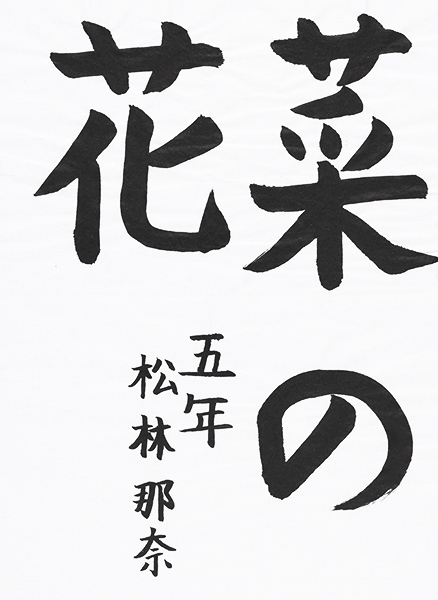 菜の
花
五年
松林那奈